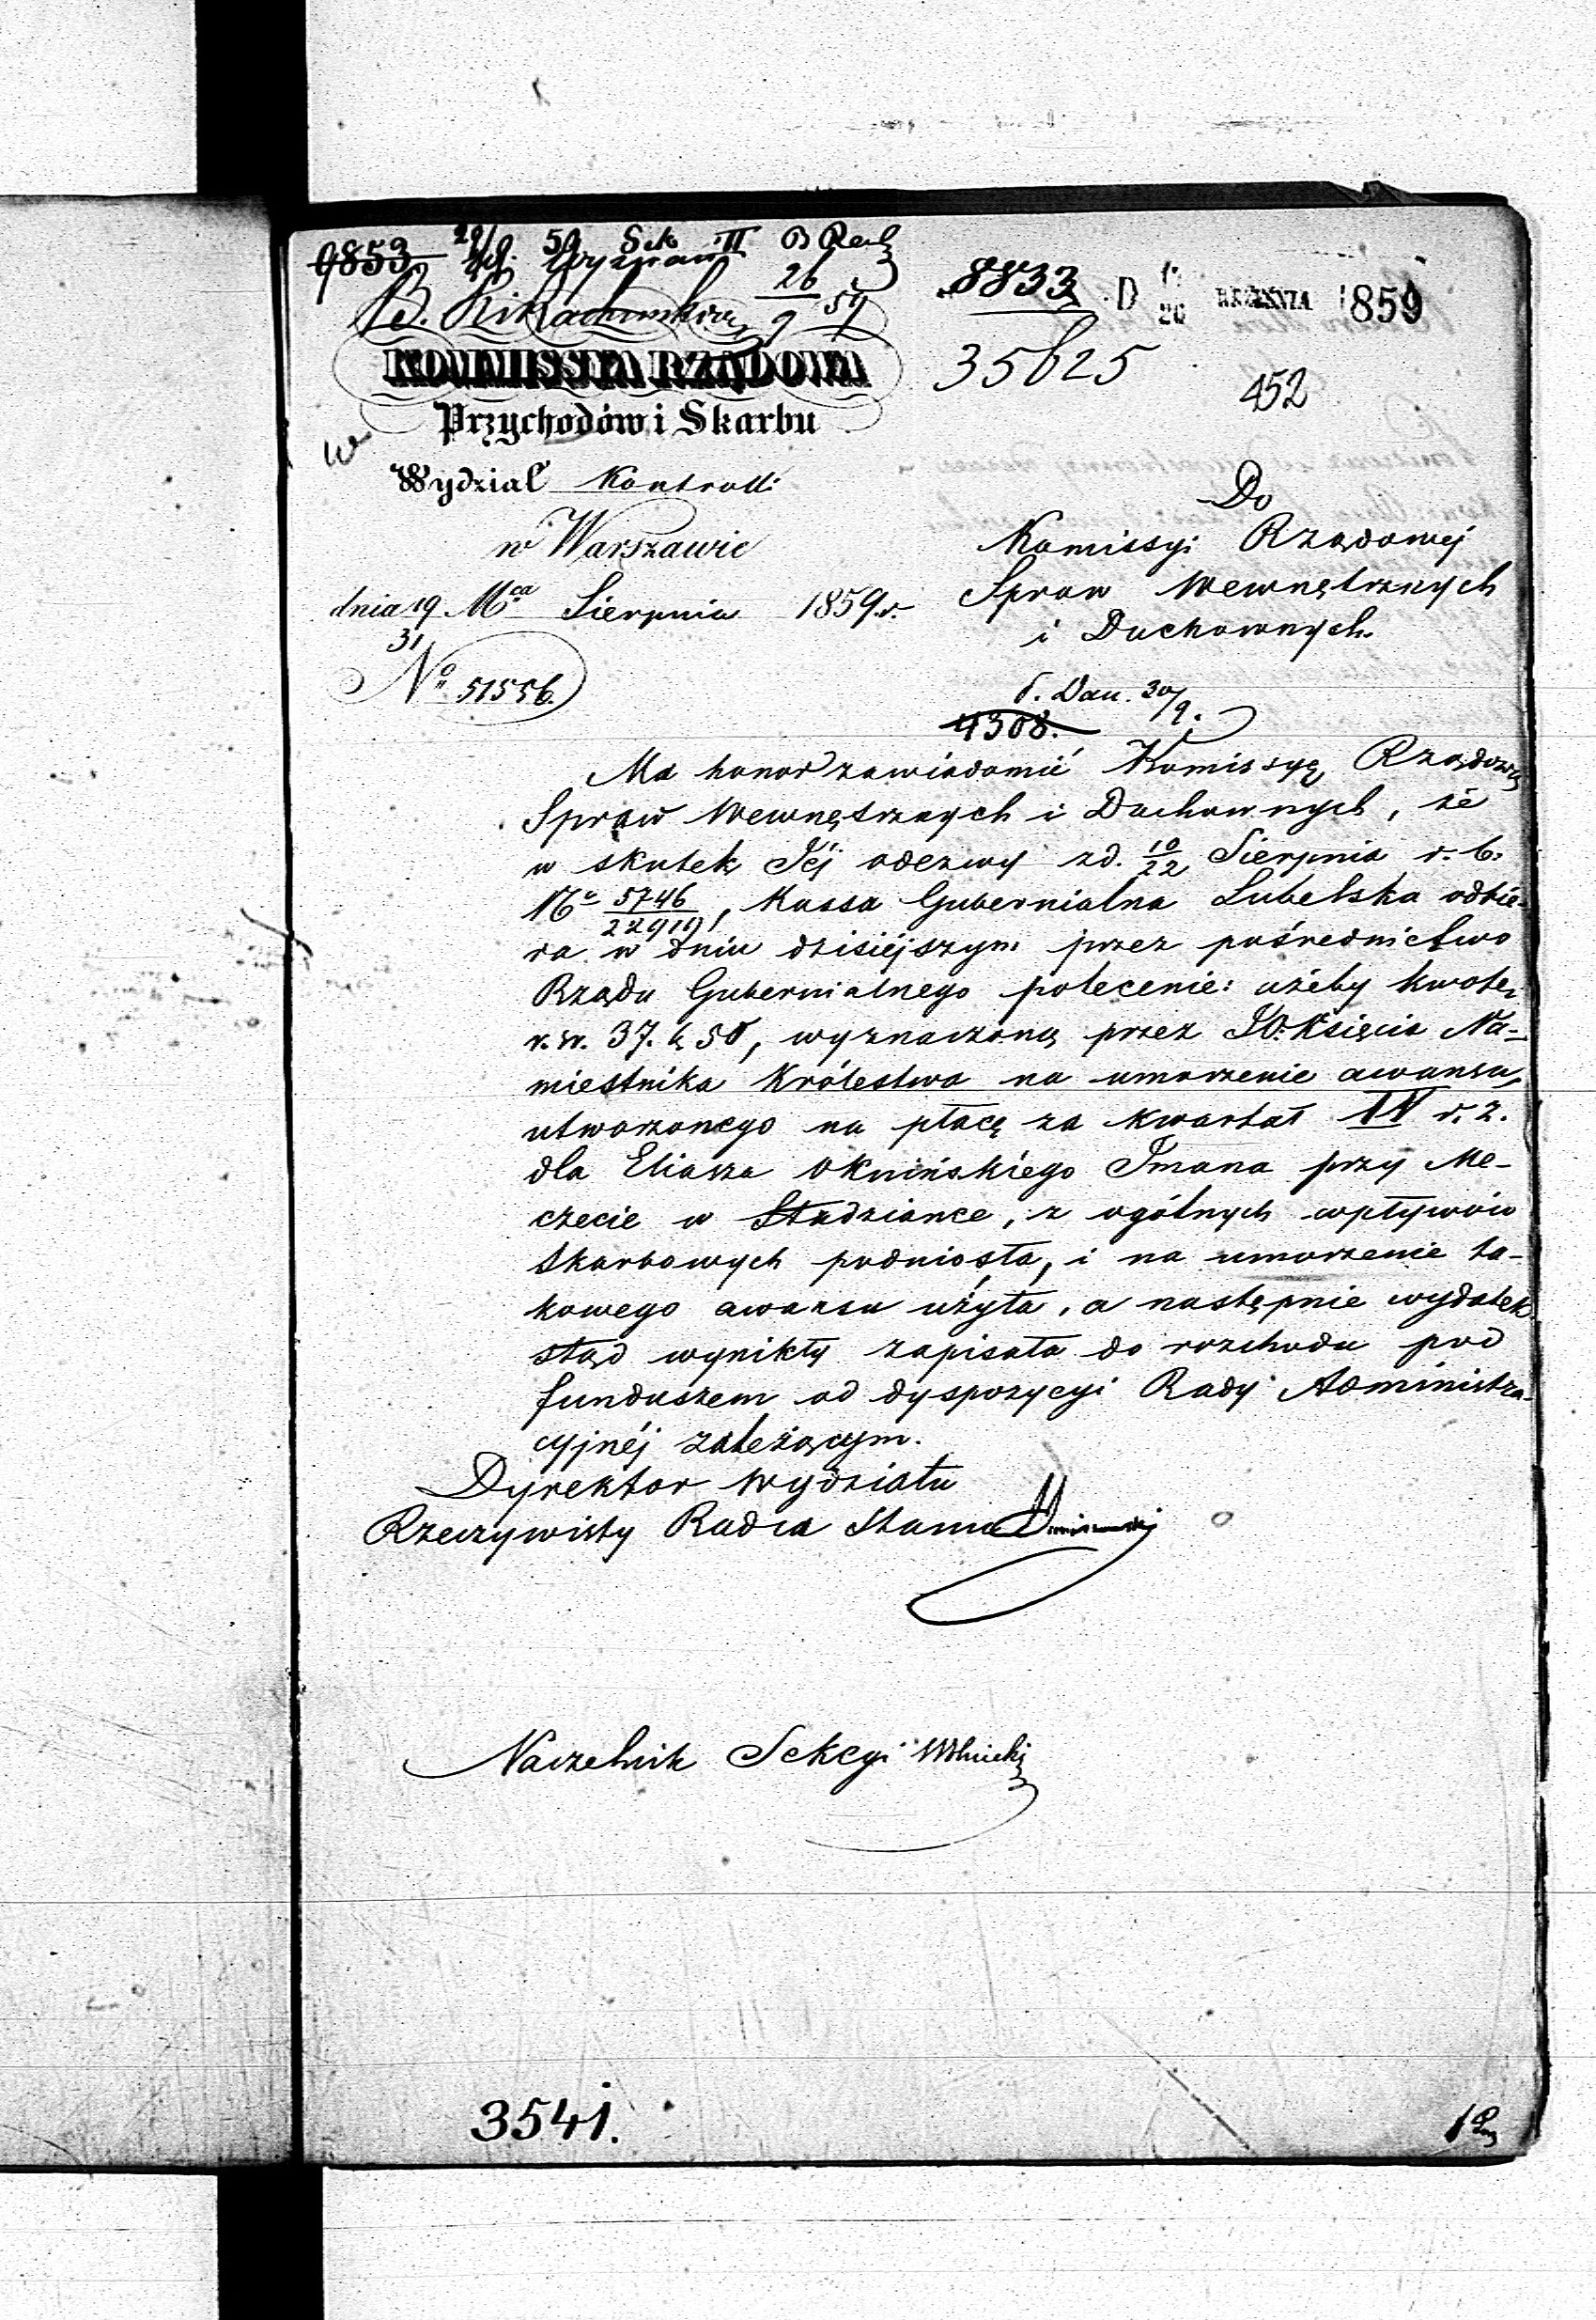 9853
8833
D WRZEŚNIA 1859
35625
452
KOMMISSYA RZĄDOWA
Przychodów i Skarbu
Wydział Kontroli
w Warszawie
dnia 19/31 Mca Sierpnia 1859 r.
No 51556.
Do
Komissyi Rządowej
Spraw Wewnętrznych
i Duchownych.
4308.
Ma honor zawiadomić Komissyę Rządową
Spraw Wewnętrznych i Duchownych, że
w skutek Jéj odezwy z d. 10/22 Sierpnia r. b.
No 5746/22919, Kassa Gubernialna Lubelska odbie-
ra w dniu dzisiéjszym przez pośrednictwo
Rządu Gubernialnego polecenie: ażeby kwotę
r. sr. 37. k 50, wyznaczoną przez JO. Księcia Na-
miestnika Królestwa na umorzenie awansu,
utworzonego na płacę za kwartał IV r. z.
dla Eliasza Okuińskiego Imana przy Me-
czecie w Studziance, z ogólnych wpływów
skarbowych podniosła, i na umorzenie ta-
kowego awansu użyła, a następnie wydatek
stąd wynikły zapisała do rozchodu pod
funduszem od dyspozycyi Rady Administra-
cyjnéj zależącym.
Dyrektor Wydziału
Rzeczywisty Radca Stanu
Naczelnik Sekcyi
3541.